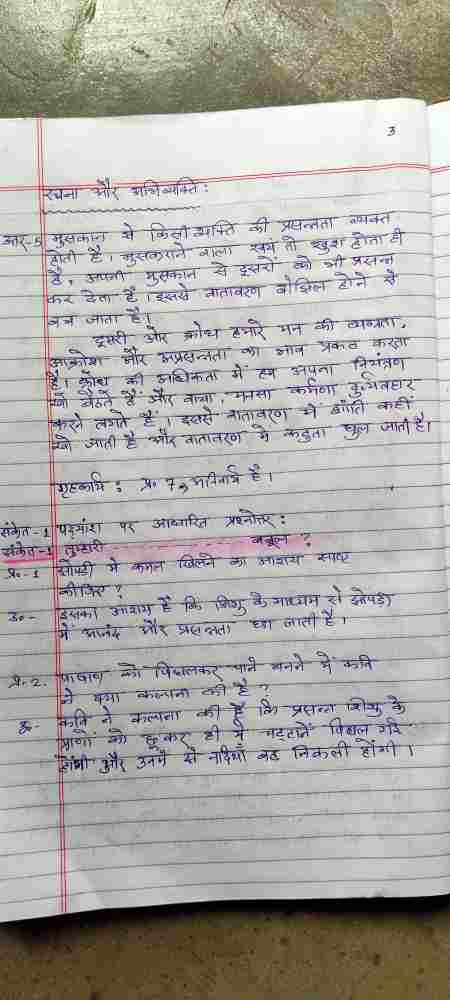 3
रचना और अभिव्यक्ति :
मुसकान से किसी व्यक्ति की प्रसन्नता व्यक्त
होती है, मुसकराने वाला स्वयं तो खुश होता ही
है, अपनी मुसकान से दूसरों को भी प्रसन्न
कर देता है। इससे वातावरण बोझिल होने से
बच जाता है।
दूसरी और क्रोध हमारे मन की व्यग्रता,
आक्रोश और अप्रसन्नता का भाव प्रकट करता
है। क्रोध की अधिकता में हम अपना नियंत्रण
खो बैठते हैं और वाचा, मनसा कर्मणा दुर्व्यवहार
करने लगते हैं। इससे वातावरण में शांति कहीं
खो जाती है और वातावरण में कटुता घुल जाती है।
गृहकार्य : प्र॰ 7,
पद्यांश पर आधारित प्रश्नोत्तर :
संकेत-1 तुम्हारी बबूल ?
प्र॰-1 झोपड़ी में कमल खिलने का आशय स्पष्ट
कीजिए ?
उ॰- इसका आशय है कि शिशु के माध्यम से झोपड़ी
में आनंद और प्रसन्नता छा जाती है।
प्र॰-2. पाषाण को पिघलकर पानी बनने में कवि
ने क्या कल्पना की है ?
उ॰- कवि ने कल्पना की है कि प्रसन्न शिशु के
प्राणों को छूकर ही ये चट्टानें पिघल गई
होंगी और उनमें से नदियाँ बह निकली होंगी।